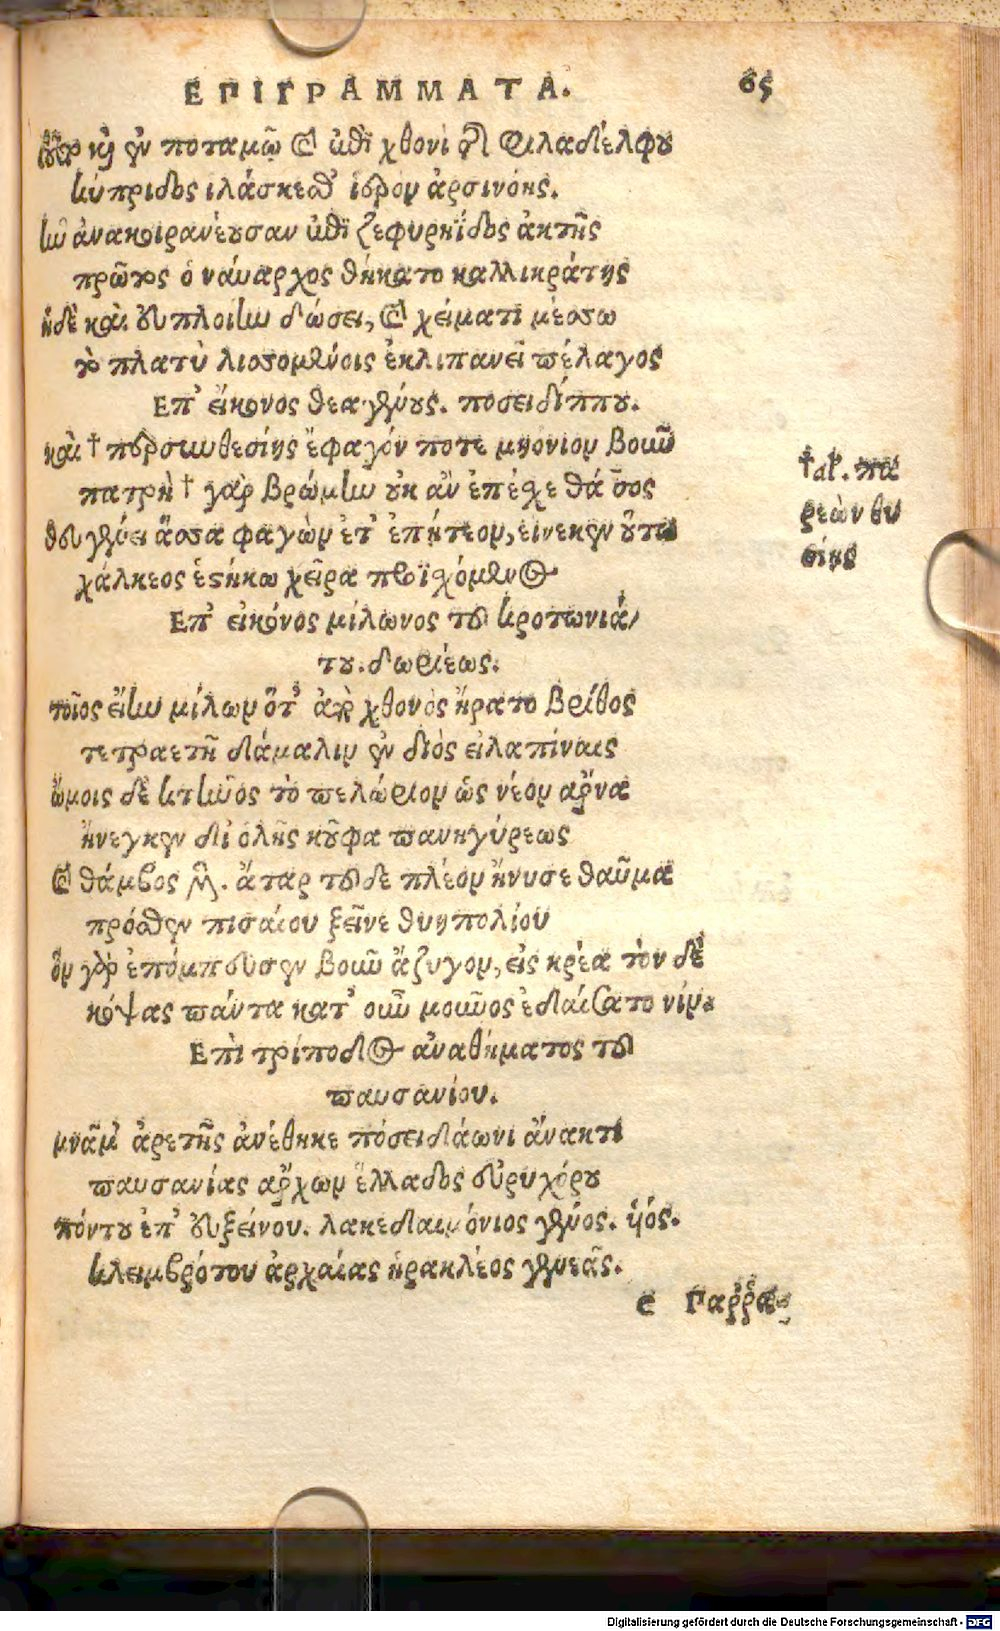 ΕΠΙΓΡΑΜΜΑΤΑ. 65
καὶ ἐν ποταμῷ καὶ ἐπὶ χθονὶ τῆς Φιλαδέλφου
κύπριδος ἱλάσκεσθ' ἱερὸν ἀρσινόης.
ἣν ἀνακοιρανέουσαν ἐπὶ ζεφυρηΐδος ἀκτῆς
πρῶτος ὁ ναύαρχος θήκατο καλλικράτης
ἡδὲ καὶ εὐπλοίην δώσει, καὶ χείματι μέσσω
τὸ πλατὺ λισσομένοις ἐκλιπανεῖ πέλαγος
Επ' εἰκόνος θεαγένους. ποσειδίππου.
καὶ † περσυνθεσίης ἔφαγόν ποτε μηόνιον βοῦν
πατρὴ † γὰρ βρώμην οὐκ ἂν ἐπέσχε θάσος
θευγένει ἅσσα φαγὼν ἔτ' ἐπήτεον, εἵνεκεν οὕτω
χάλκεος ἑστήκω χεῖρα προϊσχόμενος
Επ' εἰκόνος μίλωνος τοῦ κροτωνιά/
του. δωριέως.
τοῖος ἔην μίλων ὅτ' ἀπὸ χθονὸς ἤρατο βρίθος
τετραετῆ δάμαλιν ἐν διὸς εἰλαπίναις
ὤμοις δὲ κτῆνος τὸ πελώριον ὡς νέον ἄρνα
ἤνεγκεν δι' ὅλης κοῦφα πανηγύρεως
καὶ θάμβος μέν. ἀτὰρ τοῦδε πλέον ἤνυσε θαῦμα
πρόσθεν πισαίου ξεῖνε θυηπολίου
ὃν γὰρ ἐπόμπευσεν βοῦν ἄζυγον, εἰς κρέα τὸν δὲ
κόψας πάντα κατ' οὖν μοῦνος ἐδαίσατο νιν
Επὶ τρίποδος ἀναθήματος τοῦ
παυσανίου.
μνᾶμ' ἀρετῆς ἀνέθηκε πόσειδάωνι ἄνακτι
παυσανίας ἄρχων ἑλλάδος εὐρυχόρου
πόντου ἐπ' εὐξείνου. λακεδαιμόνιος γένος. υἱός.
κλειμβρότου ἀρχαίας ἡρακλέος γενεᾶς.
ε Γαρρ
† αλ. πα
ρεὼν θυ
σίης
Digitalisierung gefördert durch die Deutsche Forschungsgemeinschaft - DFG